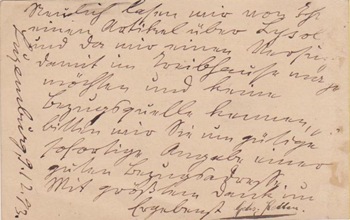 Neulich lasen wir von Ih
einen Artikel über Lysol
und da wir einen Versuch
damit im Treibhause
möchten und keine
Bezugsquelle kennen,
bitten wir Sie um gütige
sofortige Angabe einer
guten Bezugsadresse.
Mit größtem Dank im
Ergebenst
Luxemburg